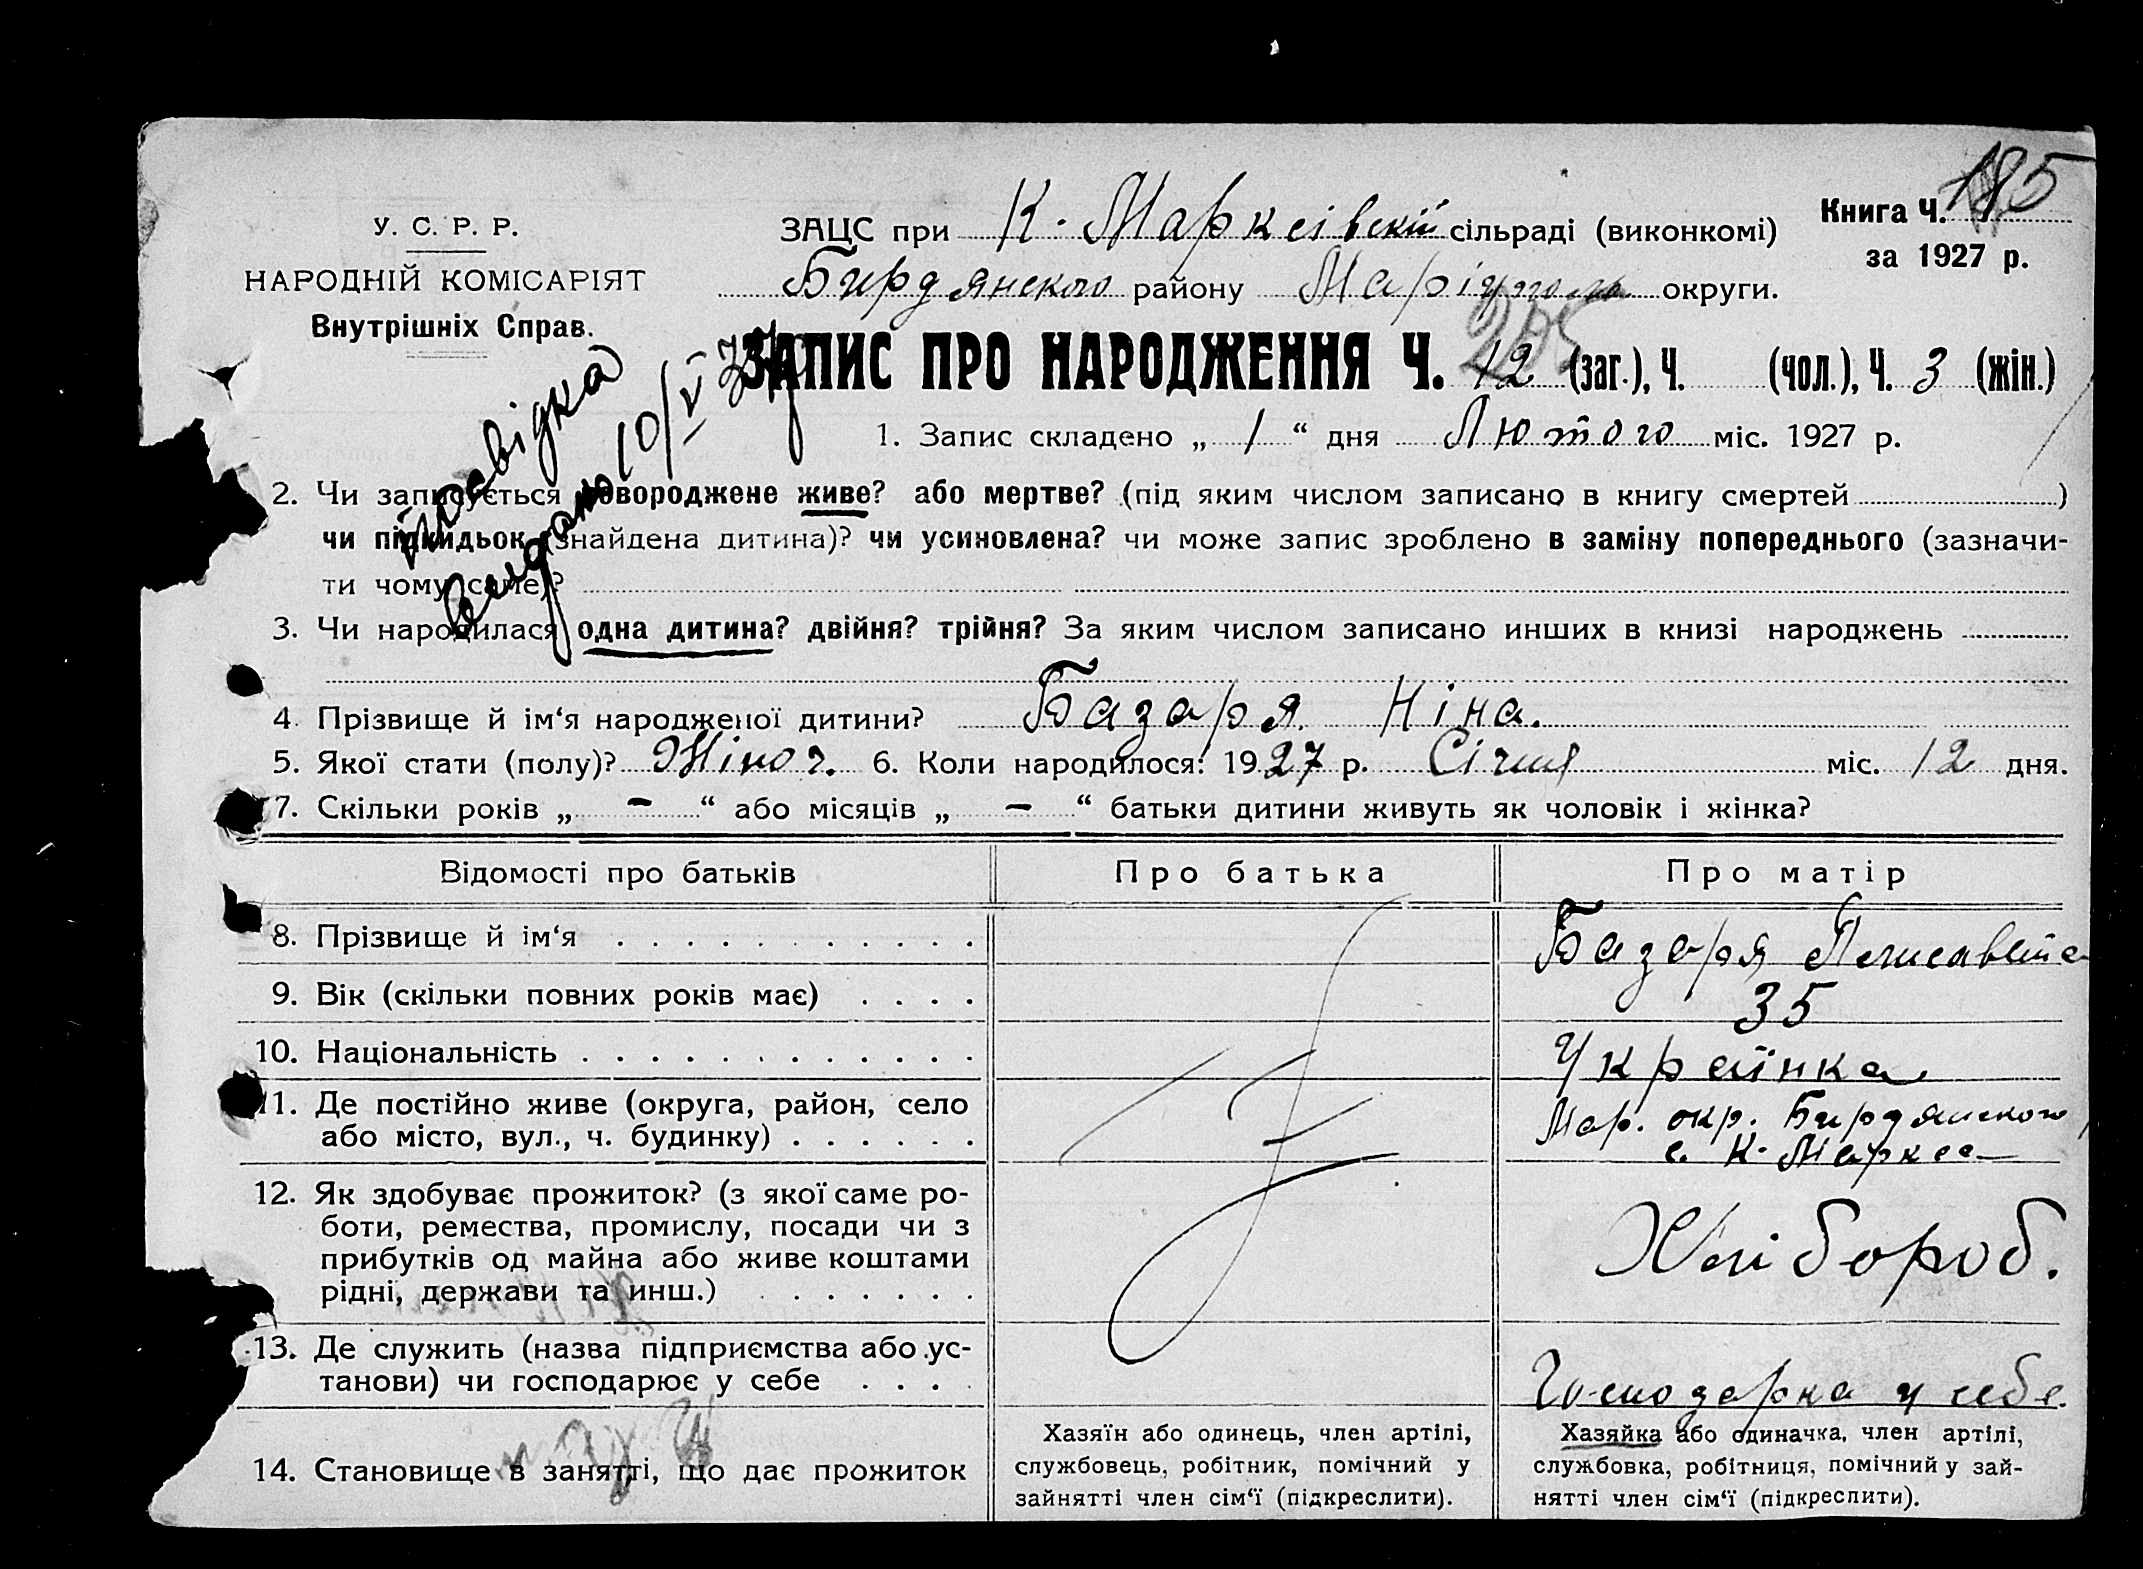 У. С. Р. Р.
НАРОДНІЙ КОМІСАРІЯТ
Внутрішніх Справ.
ЗАЦС при К. Марксівскій сільраді (виконкомі)
Бирдянского району Маріуполь округи.
Книга Ч. 185
за 1927 р.
ЗАПИС ПРО НАРОДЖЕННЯ Ч. 12 (заг.), Ч. (чол.), Ч. 3 (жін.)
205
посвідка
видано 10/VI
1. Запис складено „ 1 “ дня Лютого міс. 1927 р.
2. Чи записується новороджене живе? або мертве? (під яким числом записано в книгу смертей )
чи підкидьок (знайдена дитина)? чи усиновлена? чи може запис зроблено в заміну попереднього (зазначи-
ти чому саме)?
3. Чи народилася одна дитина? двійня? трійня? За яким числом записано инших в книзі народжень
4. Прізвище й ім‘я народженої дитини? Базаря Ніна.
5. Якої стати (полу)? Жіноч. 6. Коли народилося: 1927 р. Січня міс. 12 дня.
7. Скільки років „ – “ або місяців „ – “ батьки дитини живуть як чоловік і жінка?
Відомості про батьків Про батька Про матір
8. Прізвище й ім‘я Базаря Елисавета
9. Вік (скільки повних років має) 35
10. Національність Українка
11. Де постійно живе (округа, район, село
або місто, вул., ч. будинку)
Мар. окр. Бирдянского
с. К. Маркса
12. Як здобуває прожиток? (з якої саме ро-
боти, ремества, промислу, посади чи з
прибутків од майна або живе коштами
рідні, держави та инш.)
Хлібороб.
13. Де служить (назва підприємства або ус-
танови) чи господарює у себе
Господарка у себе.
14. Становище в занятті, що дає прожиток
Хазяїн або одинець, член артілі,
службовець, робітник, помічний у
зайнятті член сім‘ї (підкреслити).
Хазяйка або одиначка, член артілі,
службовка, робітниця, помічний у зай-
нятті член сім‘ї (підкреслити).